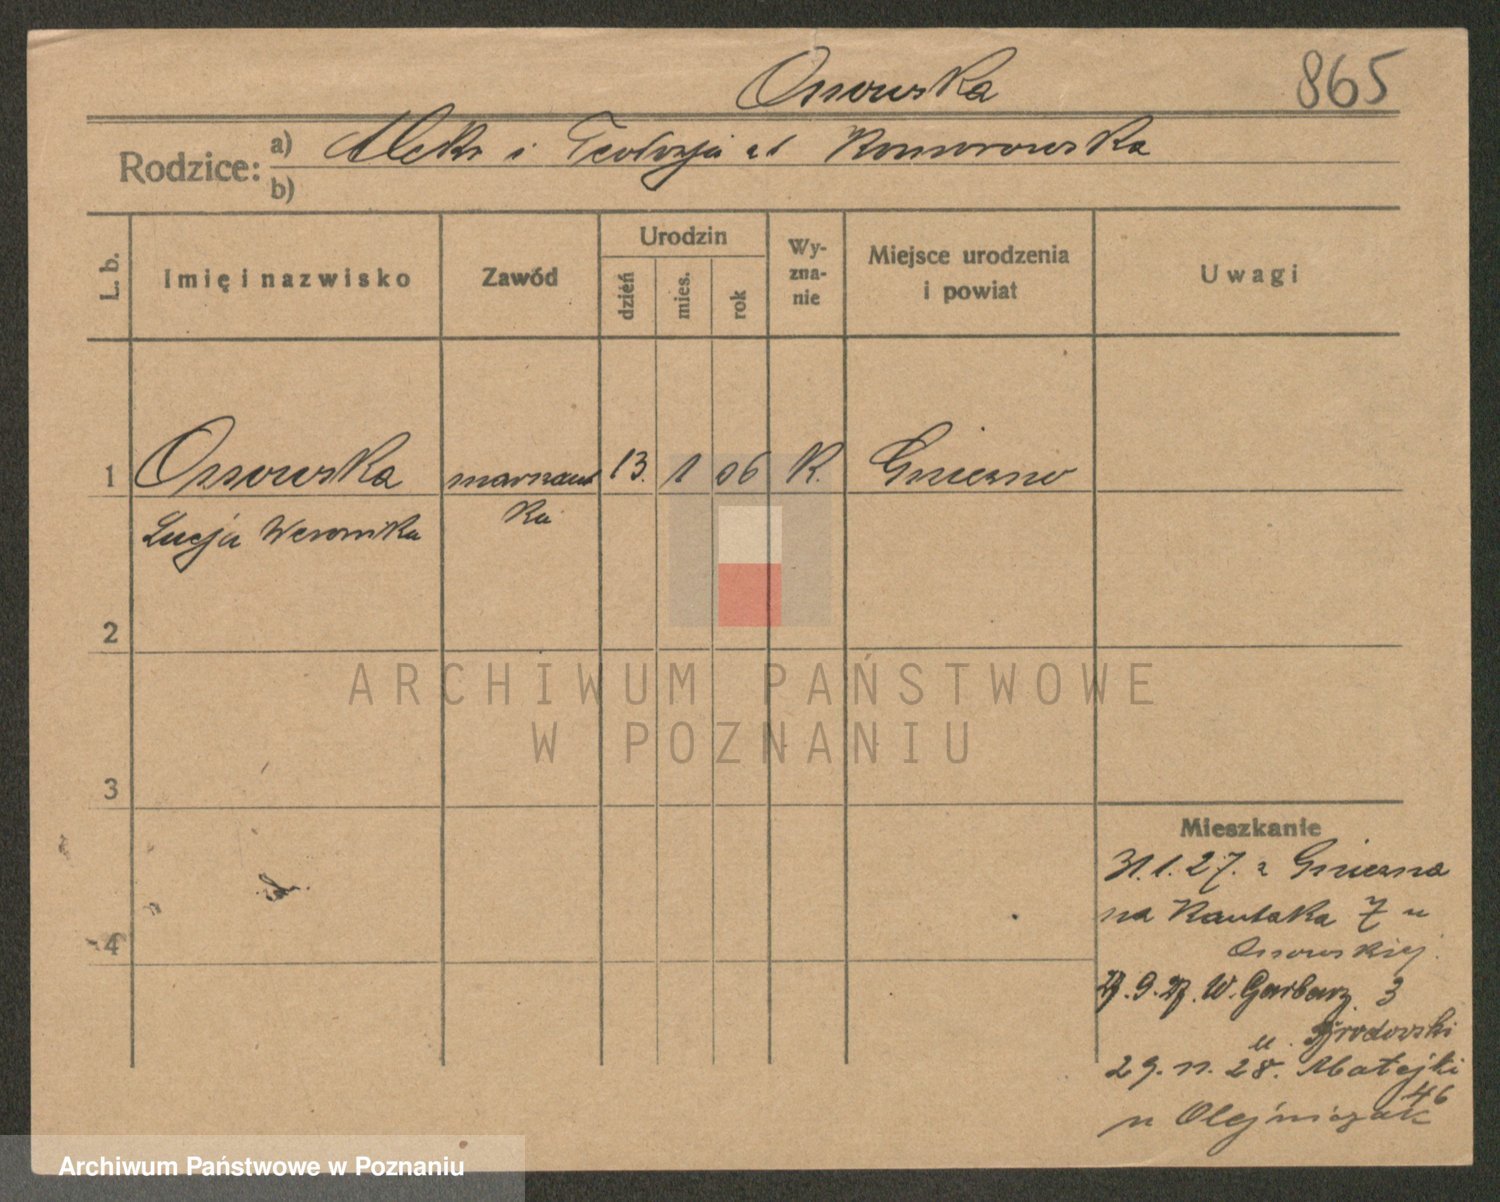 Ossowska
865
Rodzice: a) Aleks i Teofozja z d Komorowska
b)
L. b.
Imię i nazwisko
Zawód
Urodzin
dzień
mies.
rok
Wy-
zna-
nie
Miejsce urodzenia
i powiat
Uwagi
1 Ossowska
Łucja Weronika
13. 1 06 R. Gniezno
2
3
4
Mieszkanie
31.1.27. z Gniezna
na Kantaka 7 u
Ossowskiej.
9. W. Garbary 3
u
29.11.28. Matejki
46
u Olejniczak
ARCHIWUM PAŃSTWOWE
W POZNANIU
Archiwum Państwowe w Poznaniu